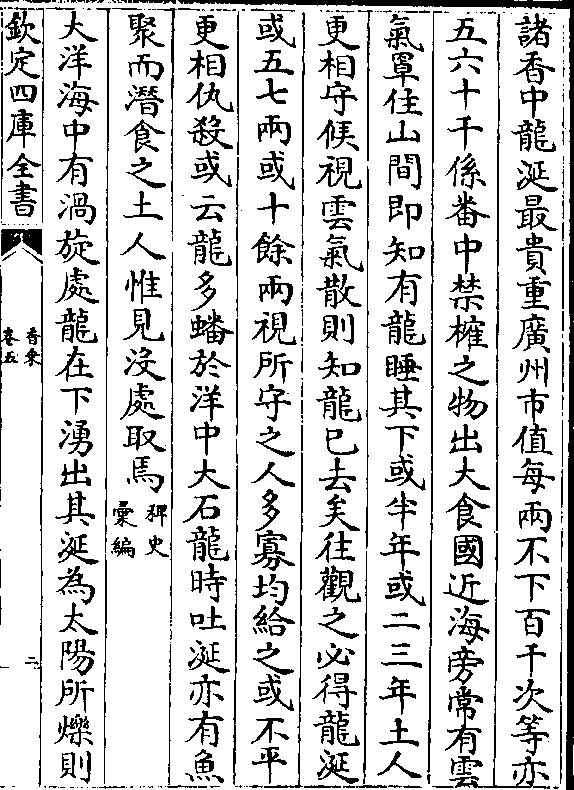 諸香中龍涎最貴重廣州市值每兩不下百千次等亦
五六十千係番中禁榷之物出大食國近海旁常有雲
氣罩住山間即知有龍睡其下或半年或二三年土人
更相守候視雲氣散則知龍已去矣往觀之必得龍涎
或五七兩或十餘兩視所守之人多寡均給之或不平
更相仇殺或云龍多蟠於洋中大石龍時吐涎亦有魚
聚而潛食之土人惟見沒處取焉
稗史
彚編
大洋海中有渦旋處龍在下湧出其涎為太陽所爍則
欽定四庫全書
香乘
卷五
二